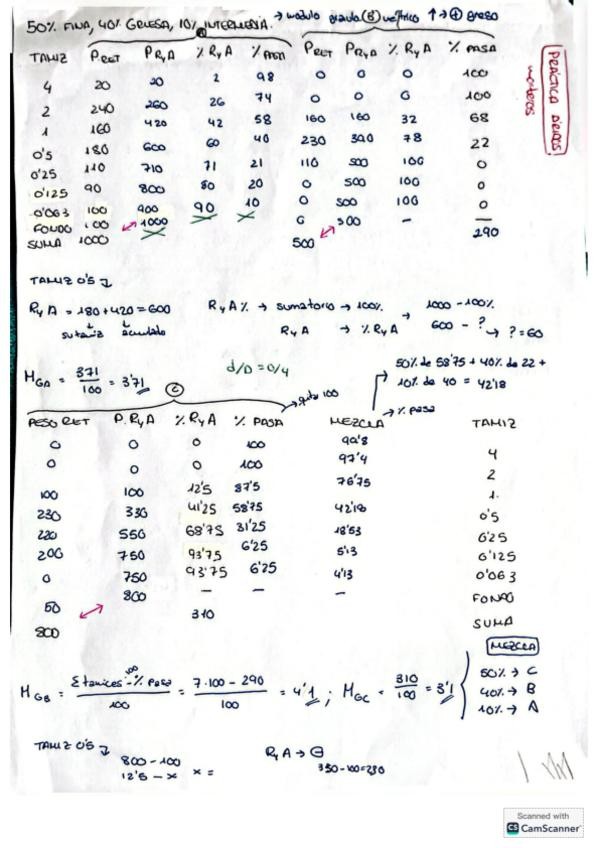 50% FINA, 40% GRUESA, 10% INTERMEDIA. → modulo granulométrico ↑ → ⊕ grueso
A (B)
TAMIZ P RET P RyA % RyA % PASA P RET P RyA % RyA % PASA
4 20 20 2 98 0 0 0 100
2 240 260 26 74 0 0 0 100
1 160 420 42 58 160 160 32 68
0'5 180 600 60 40 230 390 78 22
0'25 110 710 71 21 110 500 100 0
0'125 90 800 80 20 0 500 100 0
0'063 100 900 90 10 0 500 100 0
FONDO 100 1000 0 500 – –
SUMA 1000 500 290
PRÁCTICA ÁRIDOS
morteros
TAMIZ 0'5
RyA = 180 + 420 = 600
su tamiz acumulado
RyA% → sumatorio → 100%
RyA → % RyA
1000 – 100%
600 – ? → ? = 60
50% de 58'75 + 40% de 22 +
10% de 40 = 42'18
→ % pasa
M GA = 371/100 = 3'71
d/D = 0/4
C
PESO RET P. RyA % RyA % PASA MEZCLA TAMIZ
0 0 0 100 99'8 4
0 0 0 100 97'4 2
100 100 12'5 87'5 76'75 1.
230 330 41'25 58'75 42'18 0'5
220 550 68'75 31'25 18'53 0'25
200 750 93'75 6'25 5'13 0'125
0 750 93'75 6'25 4'13 0'063
50 800 – – – FONDO
800 310 SUMA
MEZCLA
50% → C
40% → B
10% → A
M GB = Σ tamices · 100 - % pasa / 100 = 7·100 - 290 / 100 = 4'1 ; M GC = 310/100 = 3'1
TAMIZ 0'5
800 – 100
12'5 – x x =
RyA → ⊖
330 - 100 = 230
Scanned with
CS CamScanner